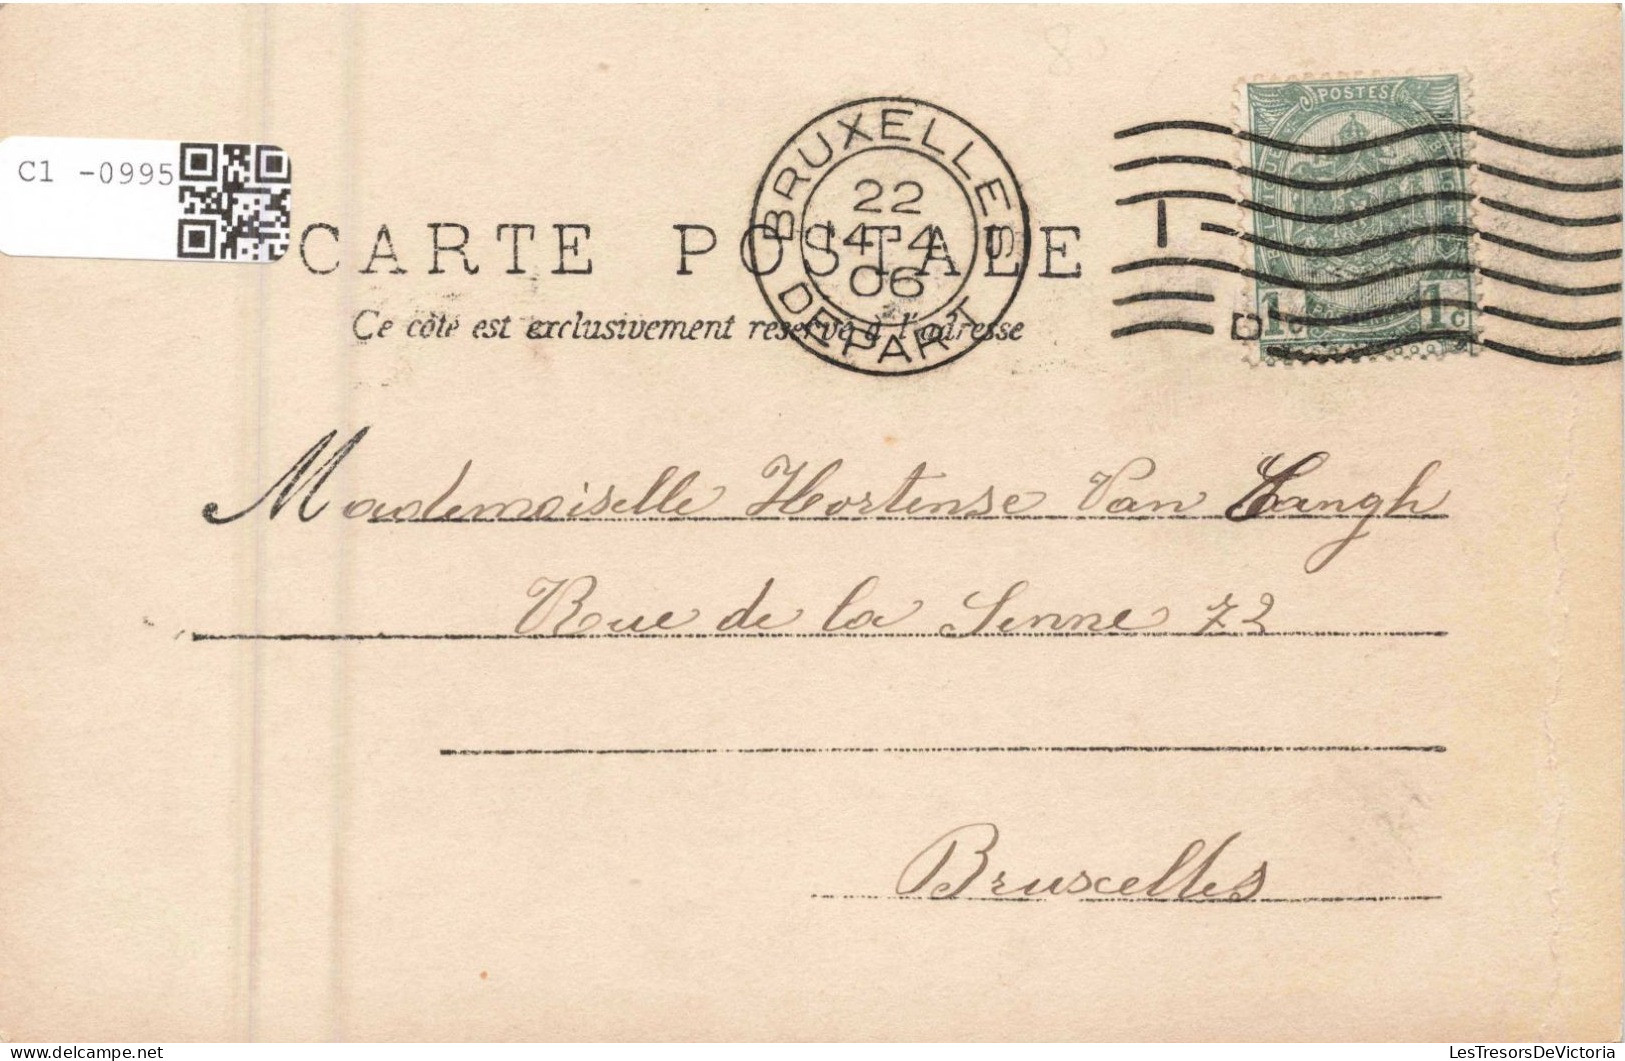 C1 -0995
BRUXELLES
22
14-4
06
DEPART
POSTES
1c 1c
CARTE POSTALE
Ce côté est exclusivement réservé à l'adresse
Mademoiselle Hortense Van Langh
Rue de la Senne 72
Bruxelles
LesTresorsDeVictoria